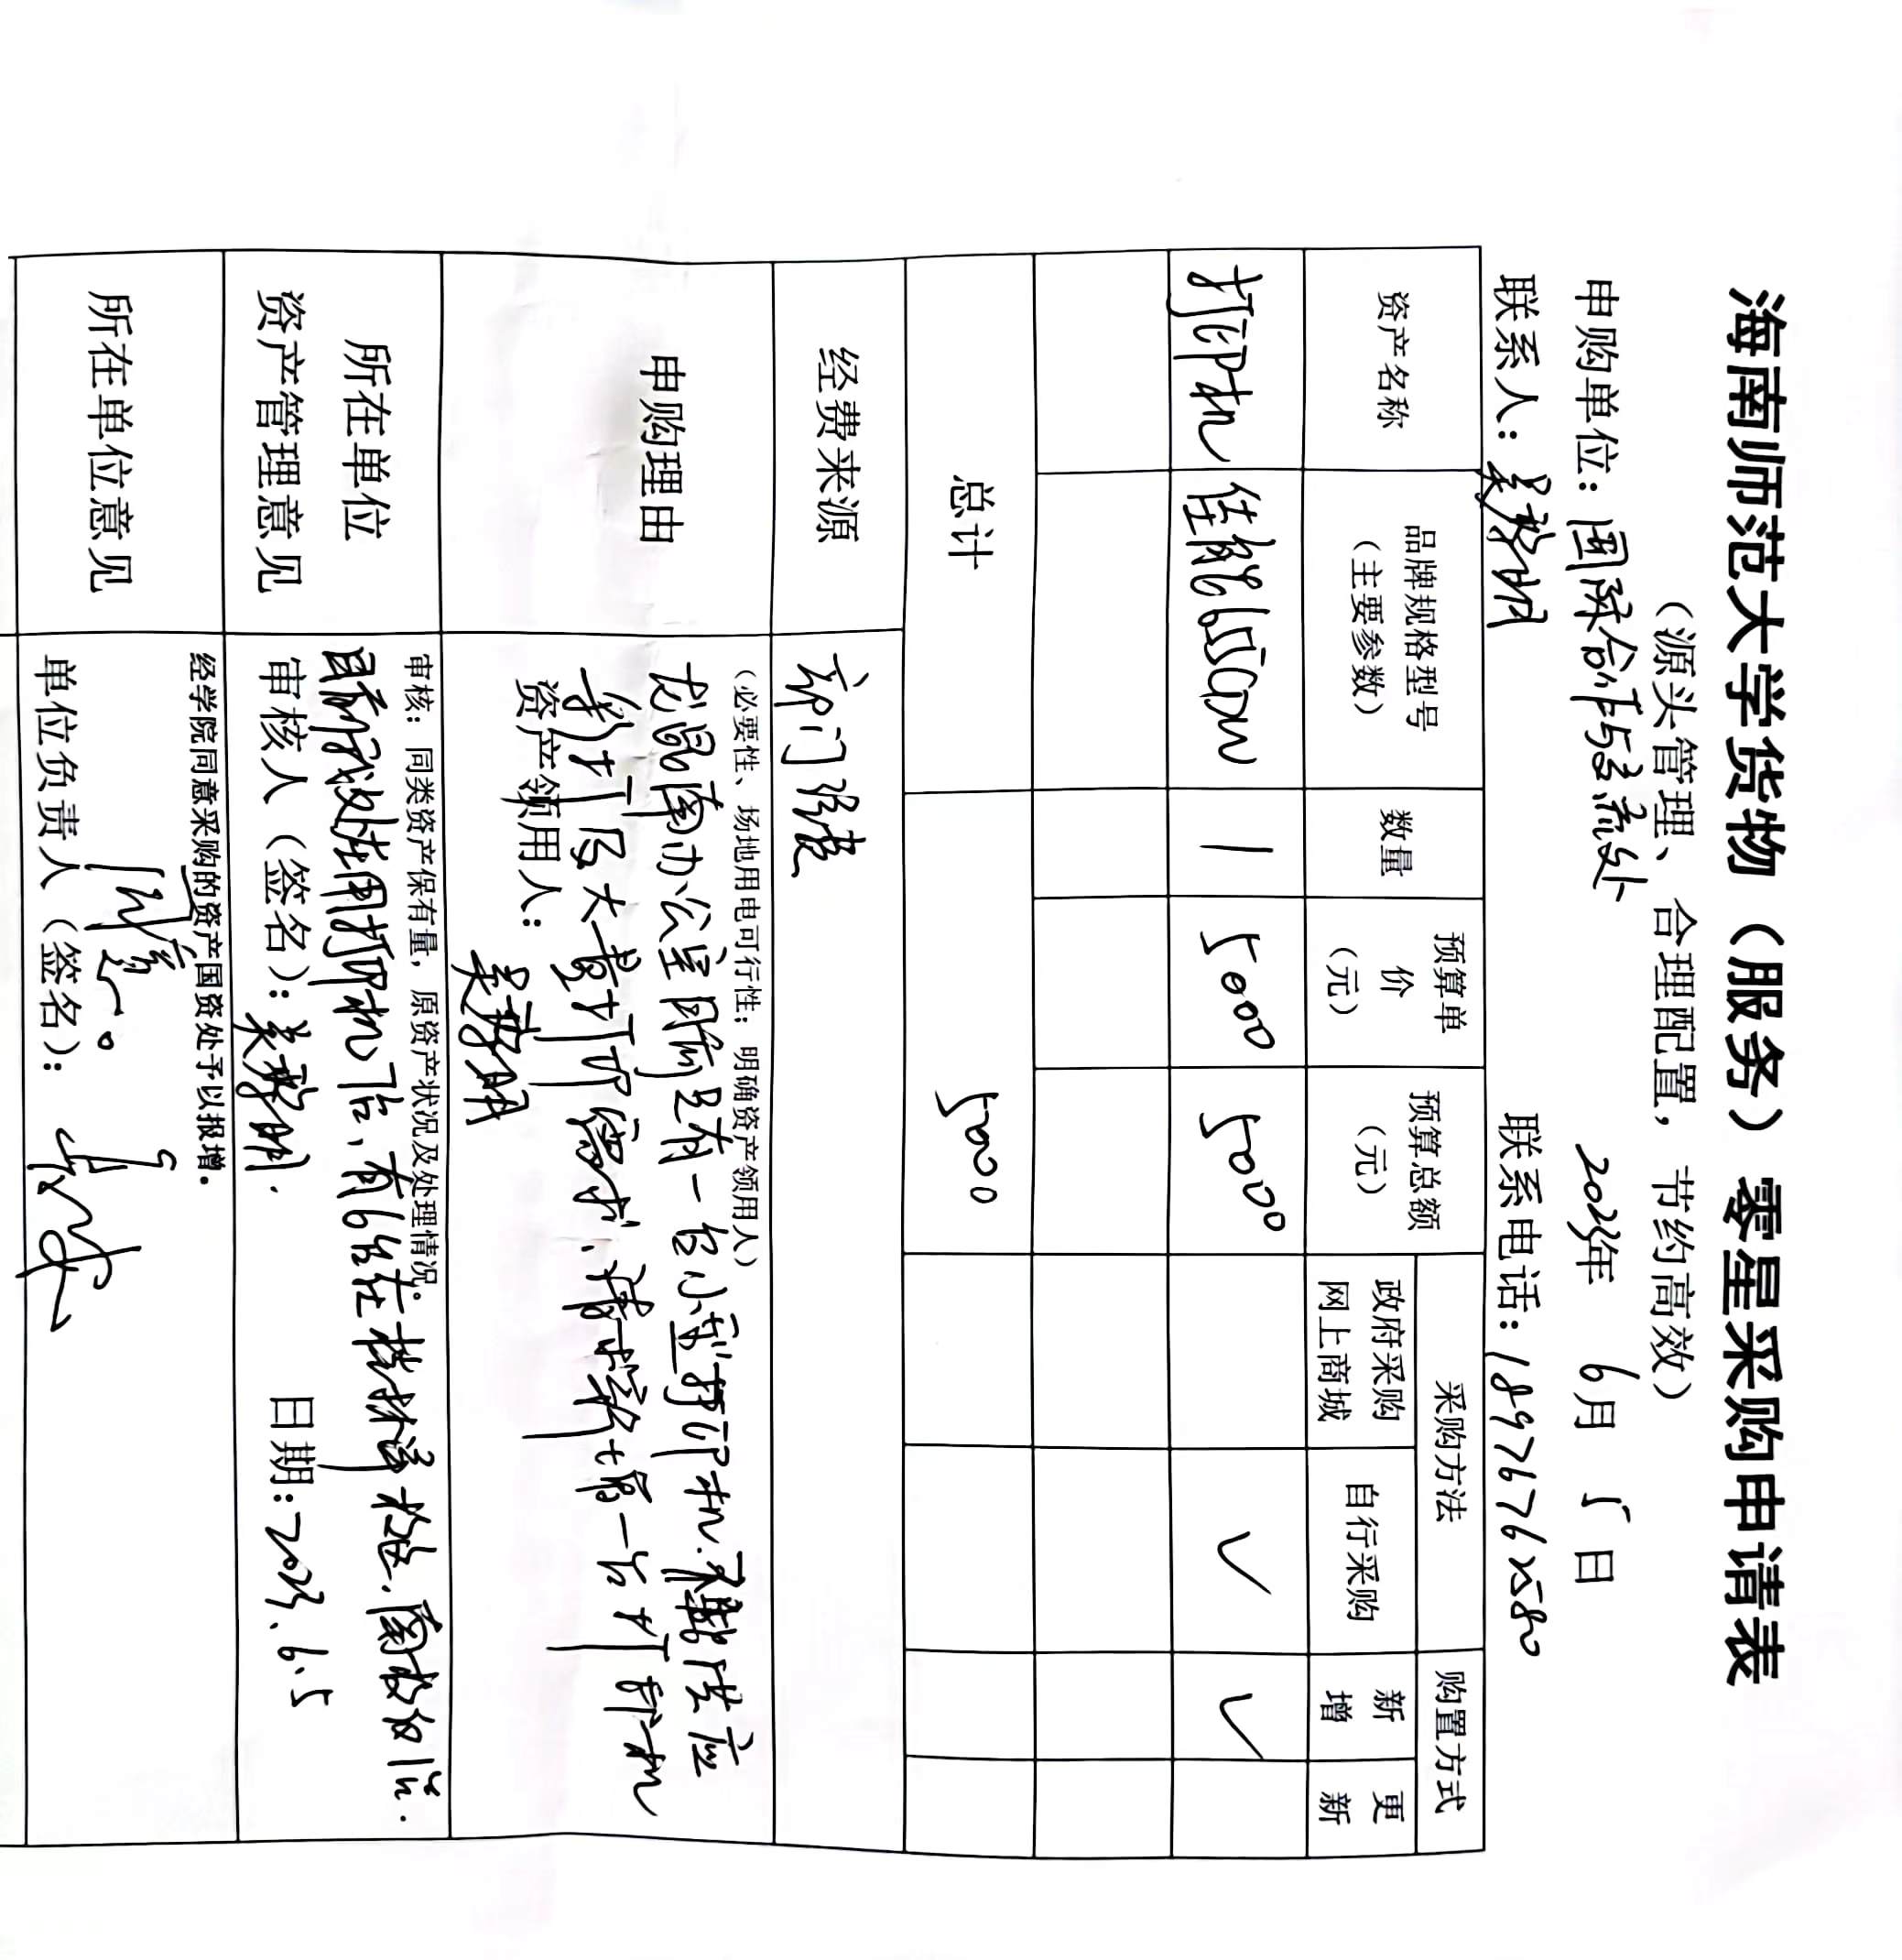 海南师范大学货物（服务）零星采购申请表
（源头管理、合理配置，节约高效）
申购单位：国际合作与交流处 2023年 6月 5日
联系人： 联系电话：18976762580
资产名称 品牌规格型号（主要参数） 数量 预算单价（元） 预算总额（元） 采购方法 购置方式
政府采购网上商城 自行采购 新增 更新
打印机 佳能 1 5000 5000 ✓ ✓
总计 5000
经费来源 部门
申购理由 （必要性、场地用电可行性；明确资产领用人）
龙昆南办公室目前只有一台小型打印机，无法应
打印及大量打印需求，需一台打印机
资产领用人：
所在单位资产管理意见 审核：同类资产保有量，原资产状况及处理情况。
目前我处在用打印机7台，有6台在桂林洋校区，南校区1台.
审核人（签名）： 日期：2023.6.5
所在单位意见 经学院同意采购的资产国资处予以报增。
同意。
单位负责人（签名）：